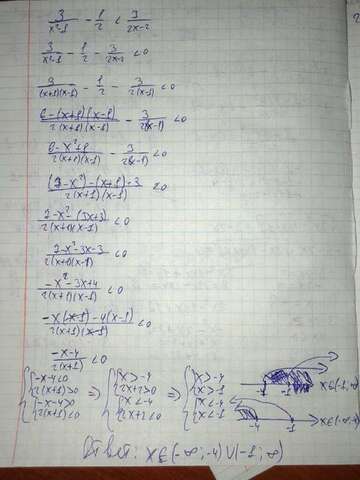 3/(x²-1) - 1/2 < 3/(2x-2)
3/(x²-1) - 1/2 - 3/(2x-2) <0
3/((x+1)(x-1)) - 1/2 - 3/(2(x-1)) <0
(6-(x+1)(x-1))/(2(x+1)(x-1)) - 3/(2(x-1)) <0
(6-x²+1)/(2(x+1)(x-1)) - 3/(2(x-1)) <0
((7-x²)-(x+1)·3)/(2(x+1)(x-1)) <0
(7-x²-(3x+3))/(2(x+1)(x-1)) <0
(7-x²-3x-3)/(2(x+1)(x-1)) <0
(-x²-3x+4)/(2(x+1)(x-1)) <0
(-x(x-1)-4(x-1))/(2(x+1)(x-1)) <0
(-x-4)/(2(x+1)) <0
{-x-4<0 => {x>-4 => {x>-4
{2(x+1)>0 {2x+2>0 {x>-1 -4 -1 x∈(-1;∞)
{-x-4>0 {x<-4 {x<-4
{2(x+1)<0 {2x+2<0 {x<-1 -4 -1 x∈(-∞;-4)
Ответ: x∈(-∞;-4)∪(-1;∞)